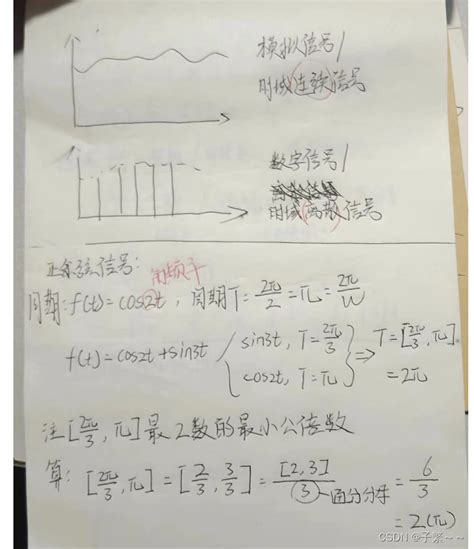 模拟信号/
时域连续信号
数字信号/
时域离散信号
正余弦信号:
角频率
周期: f(t)=cos2t, 周期T=2π/2=π=2π/W
f(t)=cos2t+sin3t { sin3t, T=2π/3
cos2t, T=π } ⇒ T=[2π/3, π]
=2π
注[2π/3, π]是2数的最小公倍数
算: [2π/3, π]=[2/3, 3/3]=[2,3]/3 通分分母 =6/3
=2(π)
CSDN @子紧~~